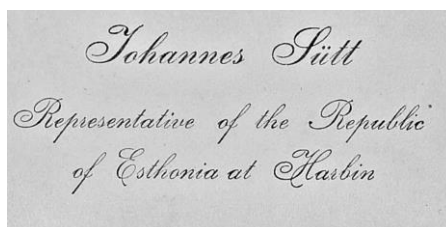 Johannes Sütt
Representative of the Republic
of Esthonia at Harbin